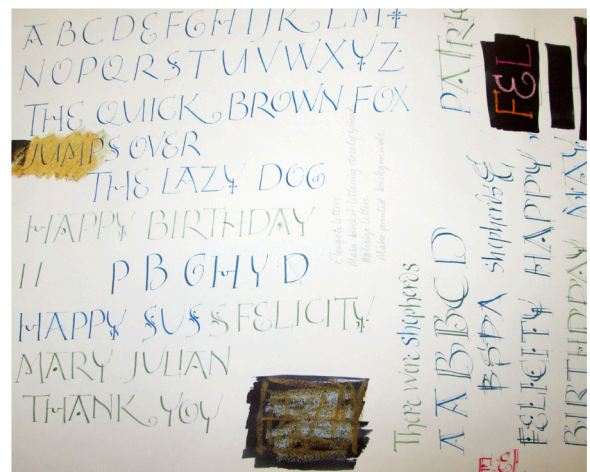 A B C D E F G H I J K L M
N O P Q R S T U V W X Y Z
THE QUICK BROWN FOX
JUMPS OVER
THE LAZY DOG
HAPPY BIRTHDAY
P B G H Y D
HAPPY SUS S FELICITY
MARY JULIAN
THANK YOU
Elongate letters
There were shepherds
A A B B C D
shepherds
PATRI
FEL
FELICITY HAPPY
BIRTHDAY MAY
FEL